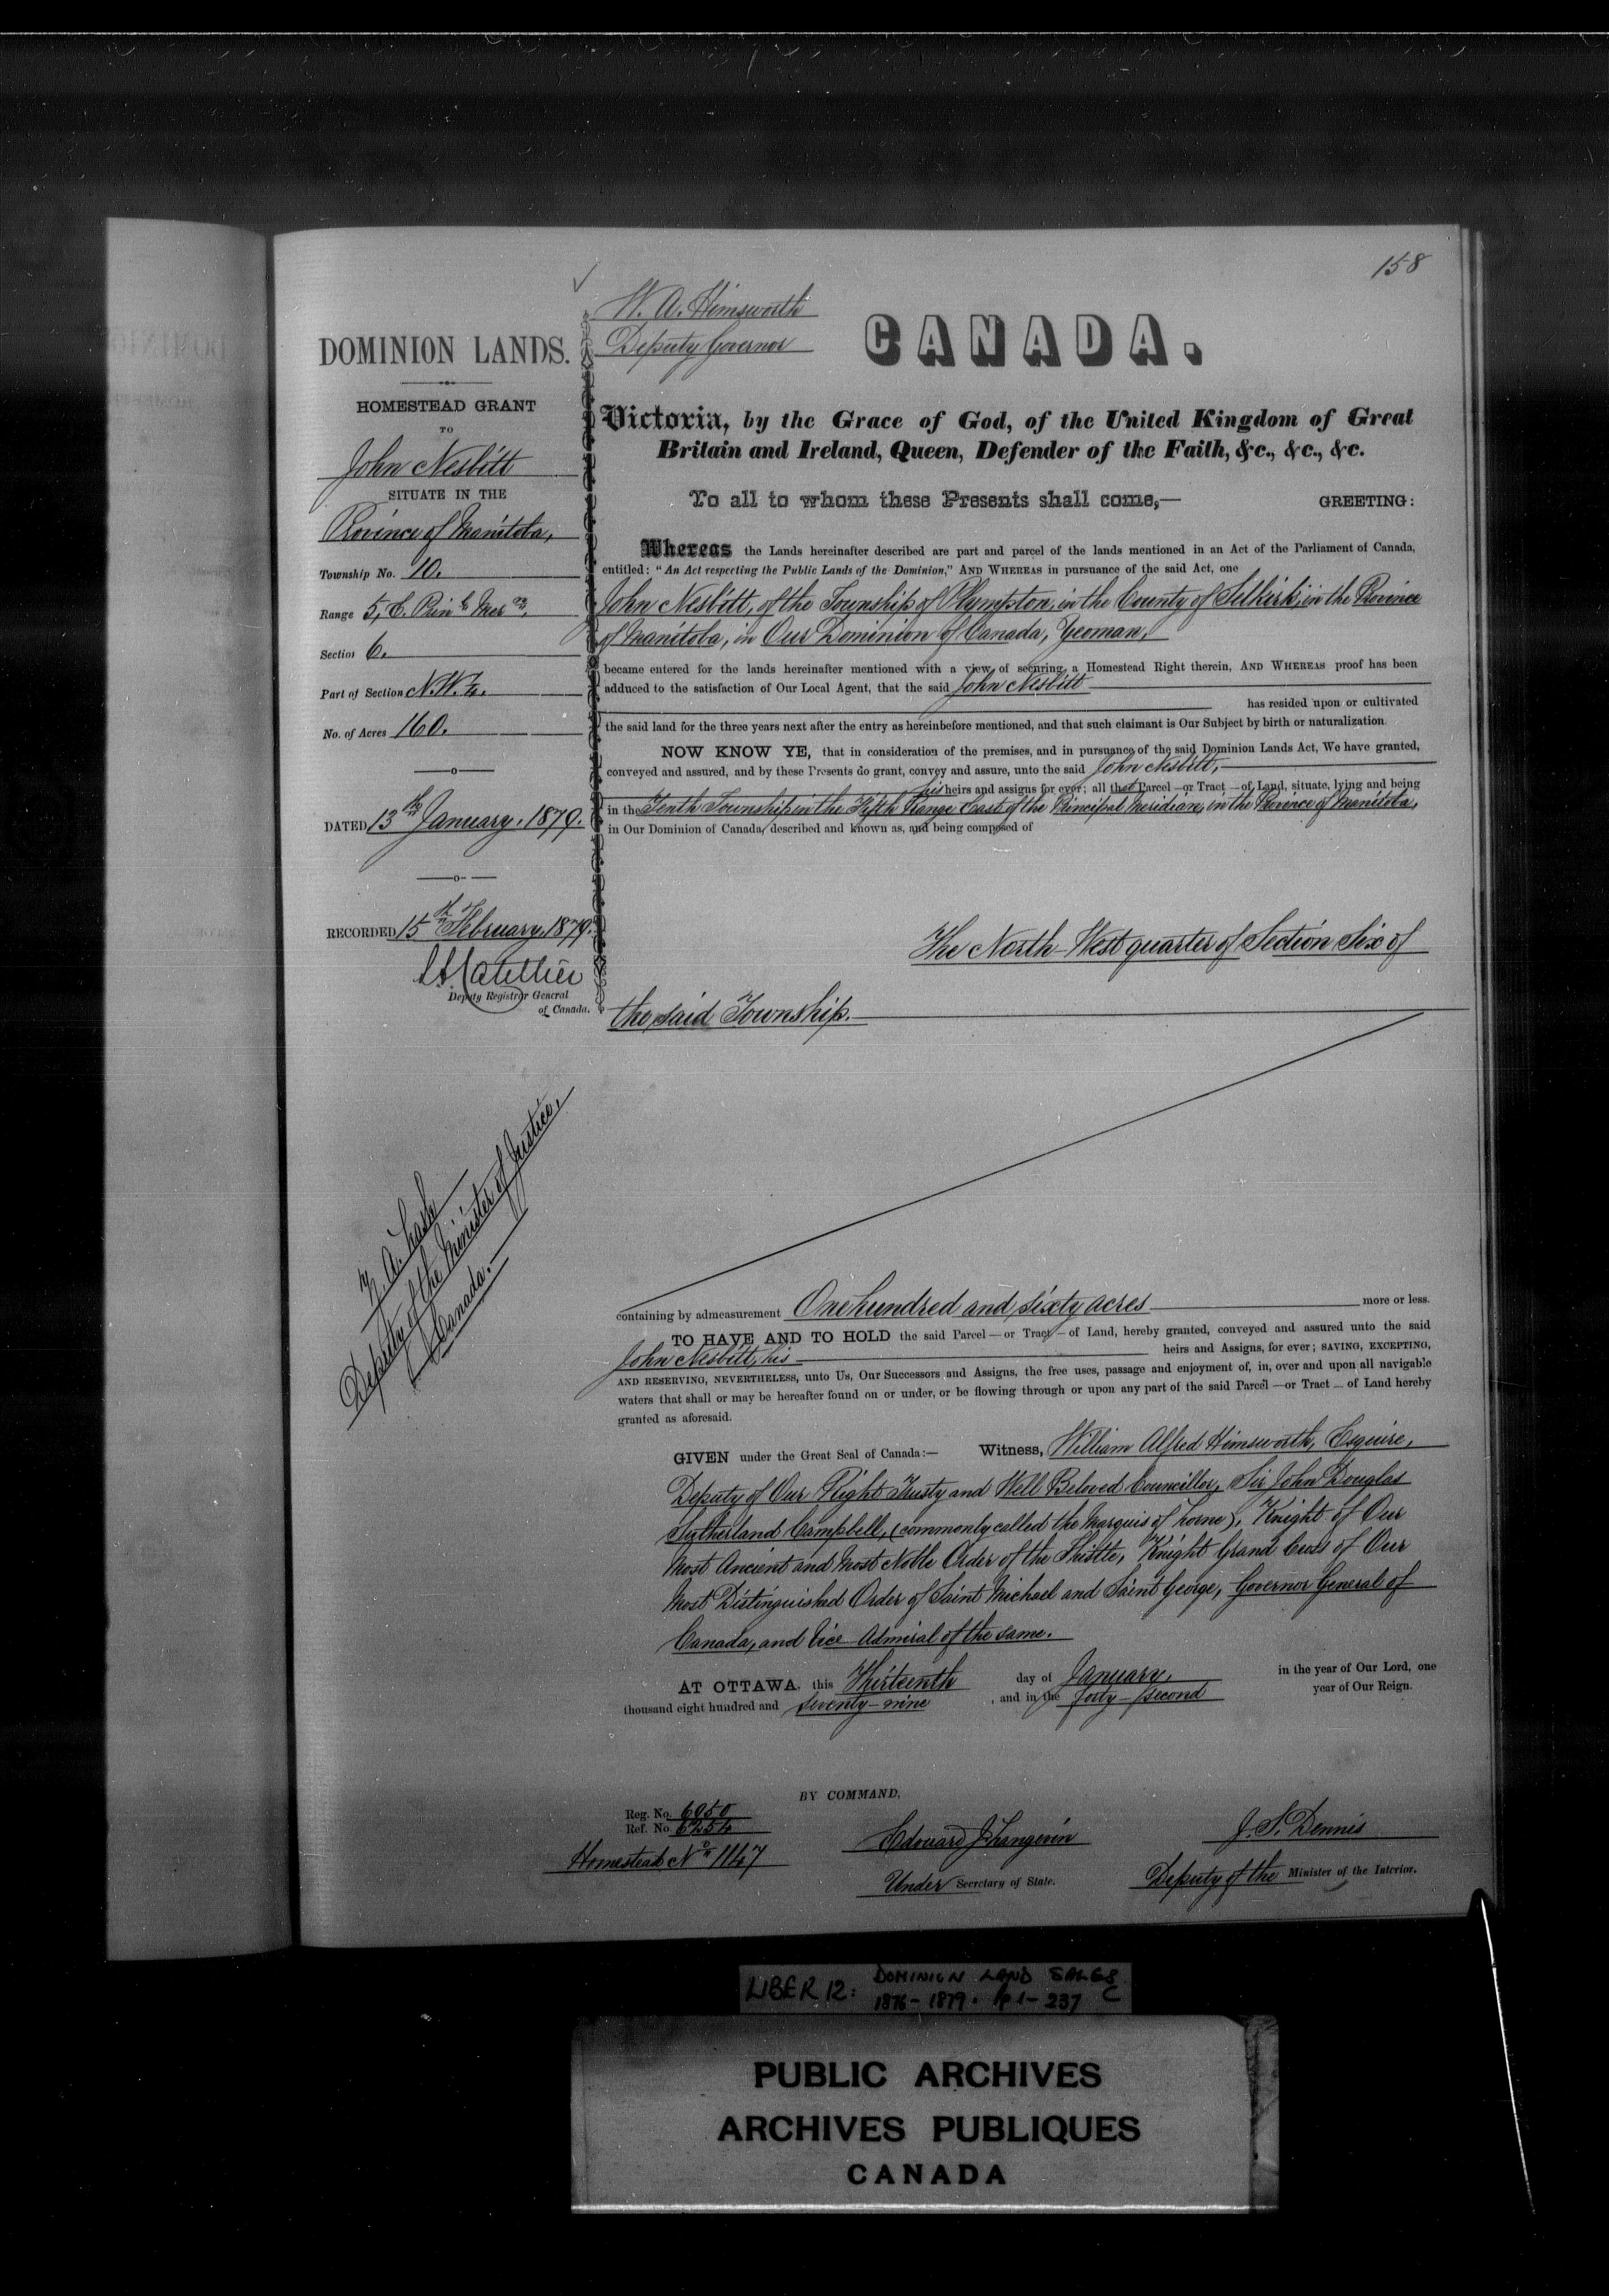 158
W. A. Himsworth
Deputy Governor
CANADA.
DOMINION LANDS.
HOMESTEAD GRANT
TO
John Nesbitt
SITUATE IN THE
Province of Manitoba,
Township No. 10.
Range 5, E. Prin l Mer n.
Section 6.
Part of Section N.W. ¼.
No. of Acres 160.
DATED 13th January, 1879.
RECORDED 15th February, 1879.
Deputy Registrar General
of Canada.
Z. A. Lash
Deputy of the Minister of Justice,
Canada.
Victoria, by the Grace of God, of the United Kingdom of Great
Britain and Ireland, Queen, Defender of the Faith, &c., &c., &c.
To all to whom these Presents shall come,— GREETING:
Whereas the Lands hereinafter described are part and parcel of the lands mentioned in an Act of the Parliament of Canada,
entitled: "An Act respecting the Public Lands of the Dominion," AND WHEREAS in pursuance of the said Act, one
John Nesbitt, of the Township of Plympton, in the County of Selkirk, in the Province
of Manitoba, in Our Dominion of Canada, Yeoman,
became entered for the lands hereinafter mentioned with a view of securing a Homestead Right therein, AND WHEREAS proof has been
adduced to the satisfaction of Our Local Agent, that the said John Nesbitt
has resided upon or cultivated
the said land for the three years next after the entry as hereinbefore mentioned, and that such claimant is Our Subject by birth or naturalization.
NOW KNOW YE, that in consideration of the premises, and in pursuance of the said Dominion Lands Act, We have granted,
conveyed and assured, and by these Presents do grant, convey and assure, unto the said John Nesbitt,
his heirs and assigns for ever; all that Parcel—or Tract—of Land, situate, lying and being
in the Tenth Township in the Fifth Range East of the Principal Meridian, in the Province of Manitoba,
in Our Dominion of Canada, described and known as, and being composed of
The North-West quarter of Section Six of
the said Township.
containing by admeasurement One hundred and sixty acres more or less.
TO HAVE AND TO HOLD the said Parcel—or Tract—of Land, hereby granted, conveyed and assured unto the said
John Nesbitt, his heirs and Assigns, for ever; SAVING, EXCEPTING,
AND RESERVING, NEVERTHELESS, unto Us, Our Successors and Assigns, the free uses, passage and enjoyment of, in, over and upon all navigable
waters that shall or may be hereafter found on or under, or be flowing through or upon any part of the said Parcel—or Tract—of Land hereby
granted as aforesaid.
GIVEN under the Great Seal of Canada:— Witness, William Alfred Himsworth, Esquire,
Deputy of Our Right Trusty and Well Beloved Councillor, Sir John Douglas
Sutherland Campbell, (commonly called the Marquis of Lorne), Knight of Our
Most Ancient and Most Noble Order of the Thistle, Knight Grand Cross of Our
Most Distinguished Order of Saint Michael and Saint George, Governor General of
Canada, and Vice Admiral of the same.
AT OTTAWA, this Thirteenth day of January, in the year of Our Lord, one
thousand eight hundred and seventy-nine, and in the forty-second year of Our Reign.
BY COMMAND,
Reg. No. 6950
Ref. No. 6254
Homestead No 1147
Edouard J. Langevin
Under Secretary of State.
J. S. Dennis
Deputy of the Minister of the Interior.
LIBER 12: DOMINION LAND SALES
1876-1879. pp 1-237 C
PUBLIC ARCHIVES
ARCHIVES PUBLIQUES
CANADA